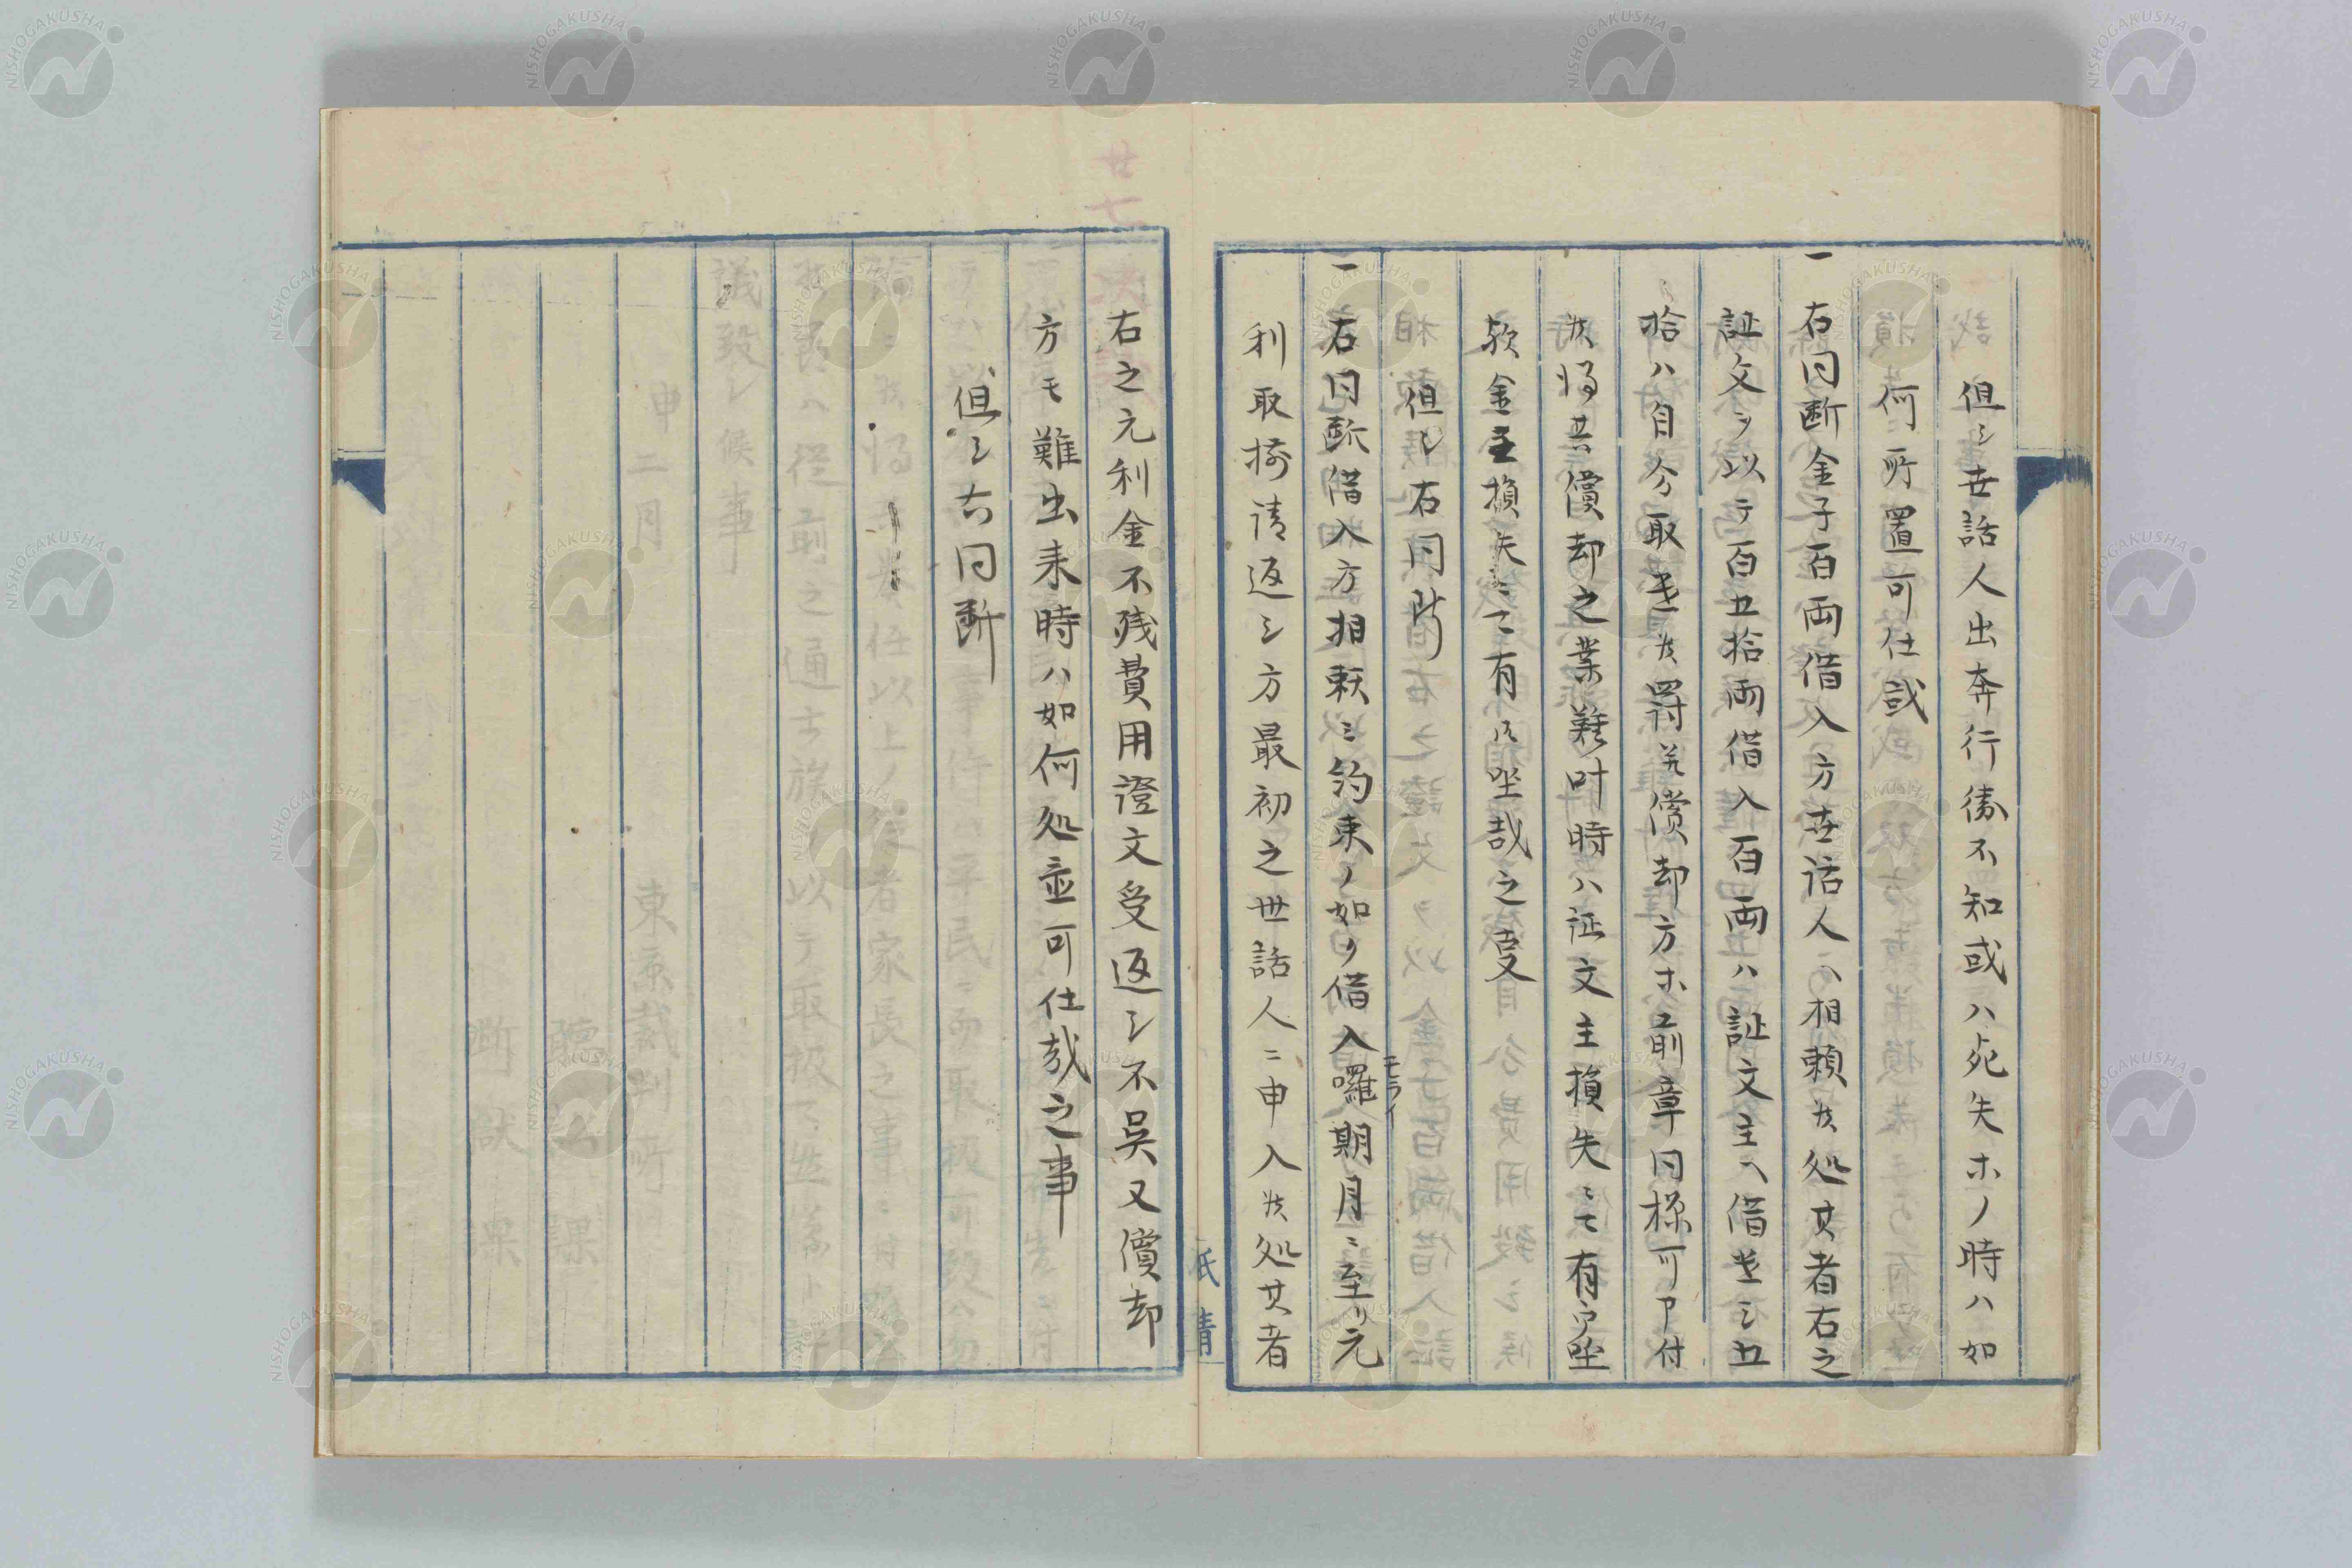 但シ世話人出奔行衛不知或ハ死失ホノ時ハ如
何所置可仕哉
一 右同断金子百両借入方世話人ヘ相頼候処其者右之
証文ヲ以テ百五拾両借入百両ハ証文主ヘ借遣シ五
拾ハ自分取遣候罸并償却方ホ前章同様可申付
候得共償却之業難叶時ハ証文主損失ニテ有御坐
歟金主損失ニテ有御坐哉之事
但シ右同断
一 右同断借入方相頼ミ約束ノ如ク借入囉期月ニ至リ元
モライ
利取揃請返シ方最初之世話人ニ申入候処其者
右之元利金不残費用證文受返シ不呉又償却
方モ難出来時ハ如何処置可仕哉之事
但シ右同断
NISHOGAKUSHA